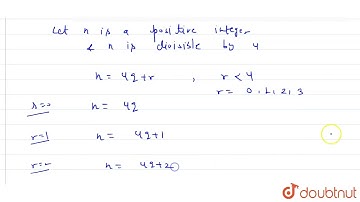 Let n is a positive integer
& n is divisible by 4
n = 4q+r , r < 4
r = 0, 1, 2, 3
r=0 n = 4q
r=1 n = 4q+1
r=2 n = 4q+2
doubtnut